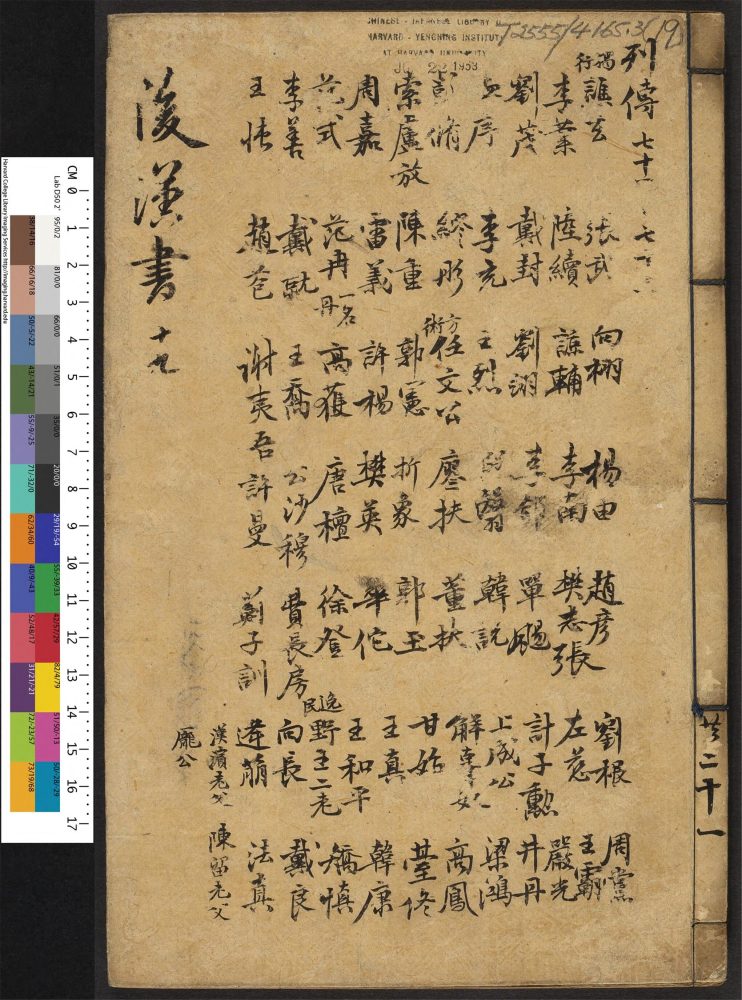 CHINESE - JAPANESE LIBRARY
HARVARD - YENCHING INSTITUTE
AT HARVARD UNIVERSITY
1953
T2555/4165.3(19)
列傳 七十一
獨行 譙玄 張武 向栩 楊由 趙彥 劉根 周黨
李業 陸續 諒輔 李南 樊志張 左慈 王霸
劉茂 戴封 劉翊 李郃 單颺 計子勳 嚴光
序 李充 王烈 翳 韓説 上成公 井丹
彭脩 繆肜 方術 任文公 廖扶 董扶 解奴辜 梁鴻
索盧放 陳重 郭憲 折象 郭玉 甘始 高鳳
周嘉 雷義 許楊 樊英 華佗 王真 臺佟
范式 范冉 一名丹 高獲 唐檀 徐登 王和平 韓康
李善 戴就 王喬 公沙穆 費長房 逸民 野王二老 矯慎
王忳 趙苞 謝夷吾 許曼 薊子訓 向長 戴良
逢萌 法真
漢濱老父 陳留老父
龐公
後漢書 十九
共二十一
CM 0 1 2 3 4 5 6 7 8 9 10 11 12 13 14 15 16 17
Harvard College Library Imaging Services